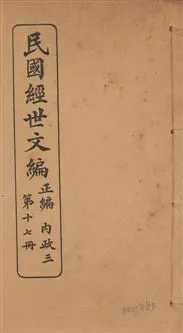 民國經世文編
正編 內政三
第十七冊